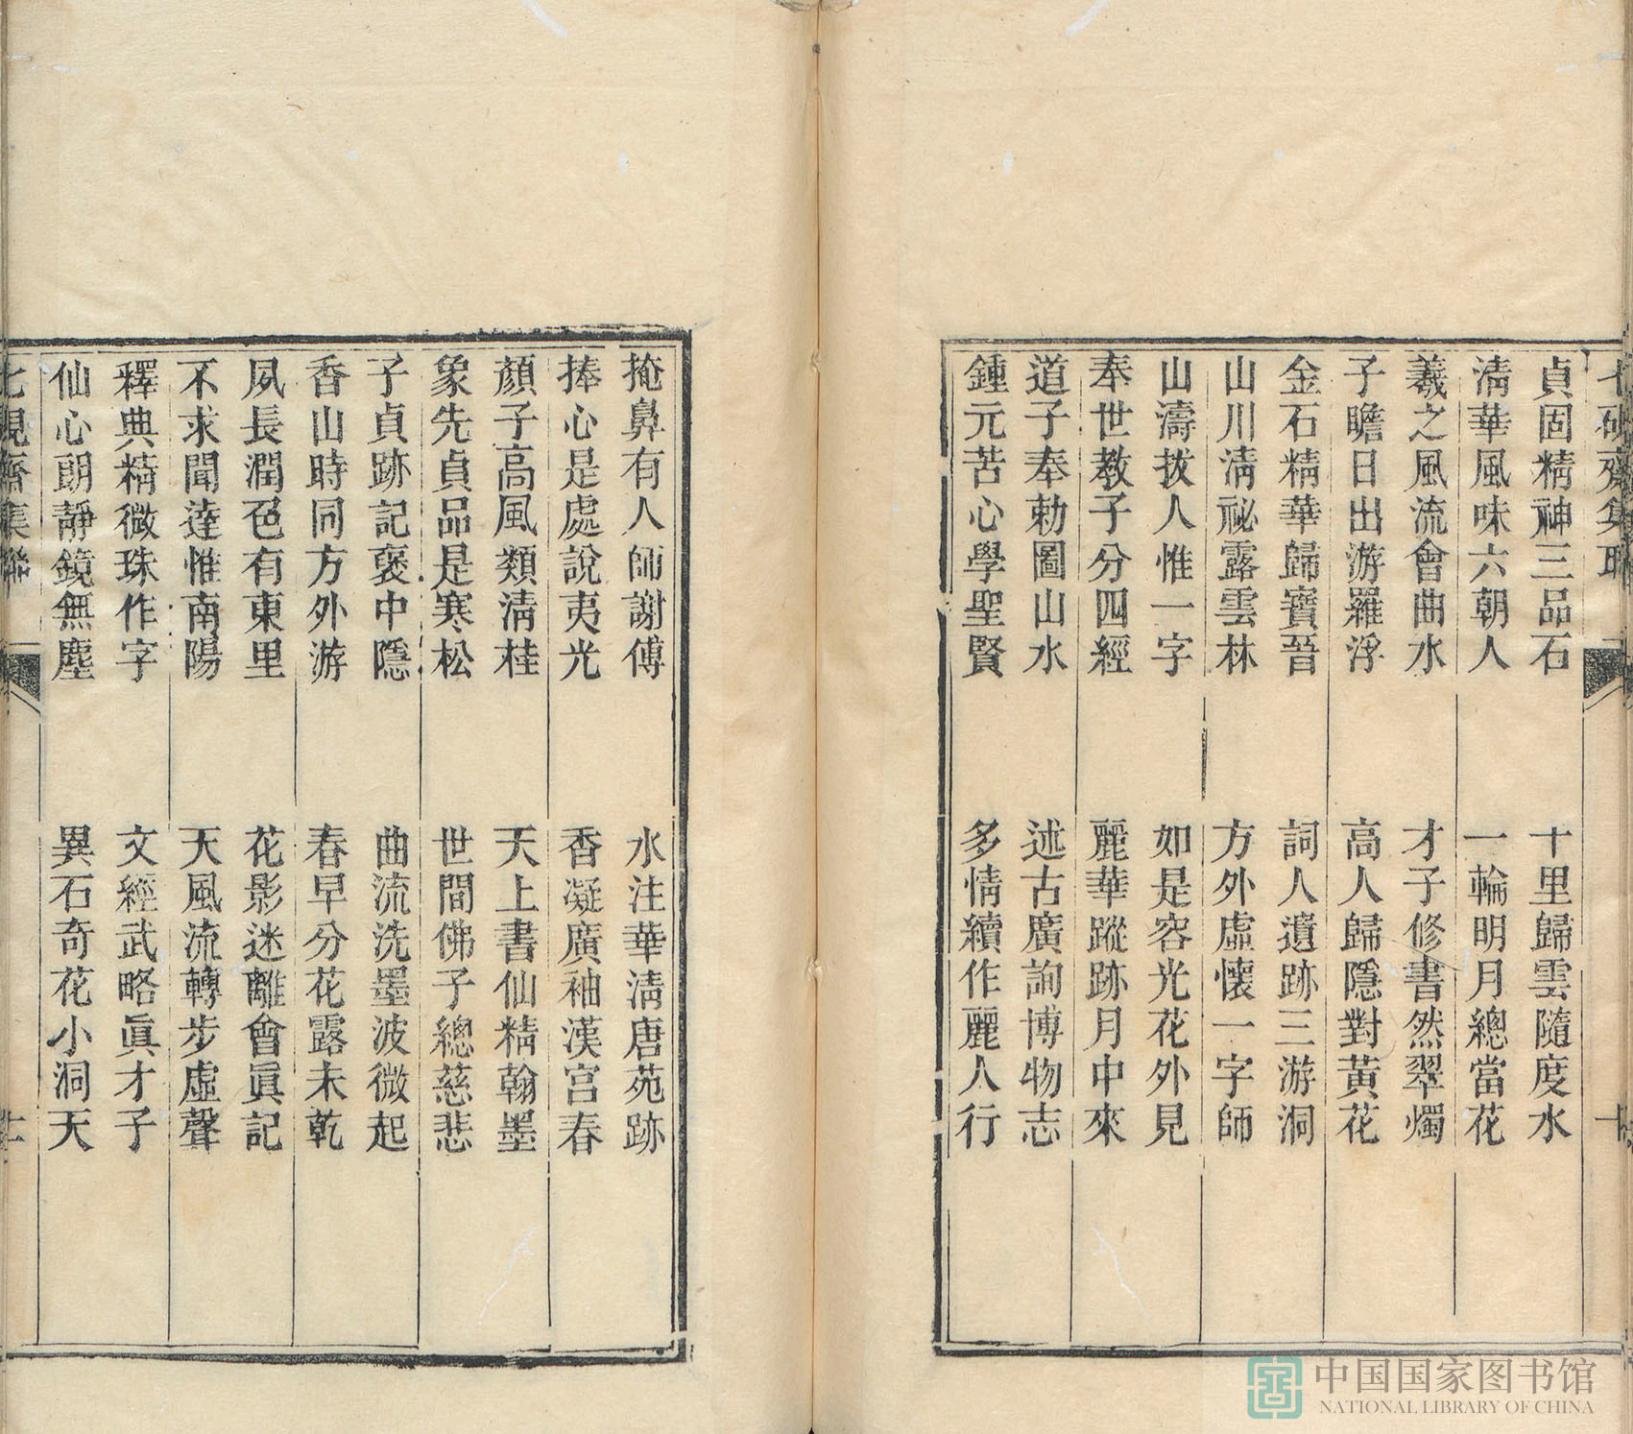 貞固精神三品石
十里歸雲隨度水
清華風味六朝人
一輪明月總當花
羲之風流會曲水
才子修書然翠燭
子瞻日出游羅浮
高人歸隱對黃花
金石精華歸寶晉
詞人遺跡三游洞
山川清祕露雲林
方外虛懷一字師
山濤拔人惟一字
如是容光花外見
奉世教子分四經
麗華蹤跡月中來
道子奉勅圖山水
述古廣詢博物志
鍾元苦心學聖賢
多情續作麗人行
掩鼻有人師謝傅
水注華清唐苑跡
捧心是處說夷光
香凝廣袖漢宮春
顏子高風類清桂
天上書仙精翰墨
象先貞品是寒松
世間佛子總慈悲
子貞跡記褒中隱
曲流洗墨波微起
香山時同方外游
春早分花露未乾
夙長潤色有東里
花影迷離會眞記
不求聞達惟南陽
天風流轉步虛聲
釋典精微珠作字
文經武略眞才子
仙心朗靜鏡無塵
異石奇花小洞天
中国国家图书馆
NATIONAL LIBRARY OF CHINA